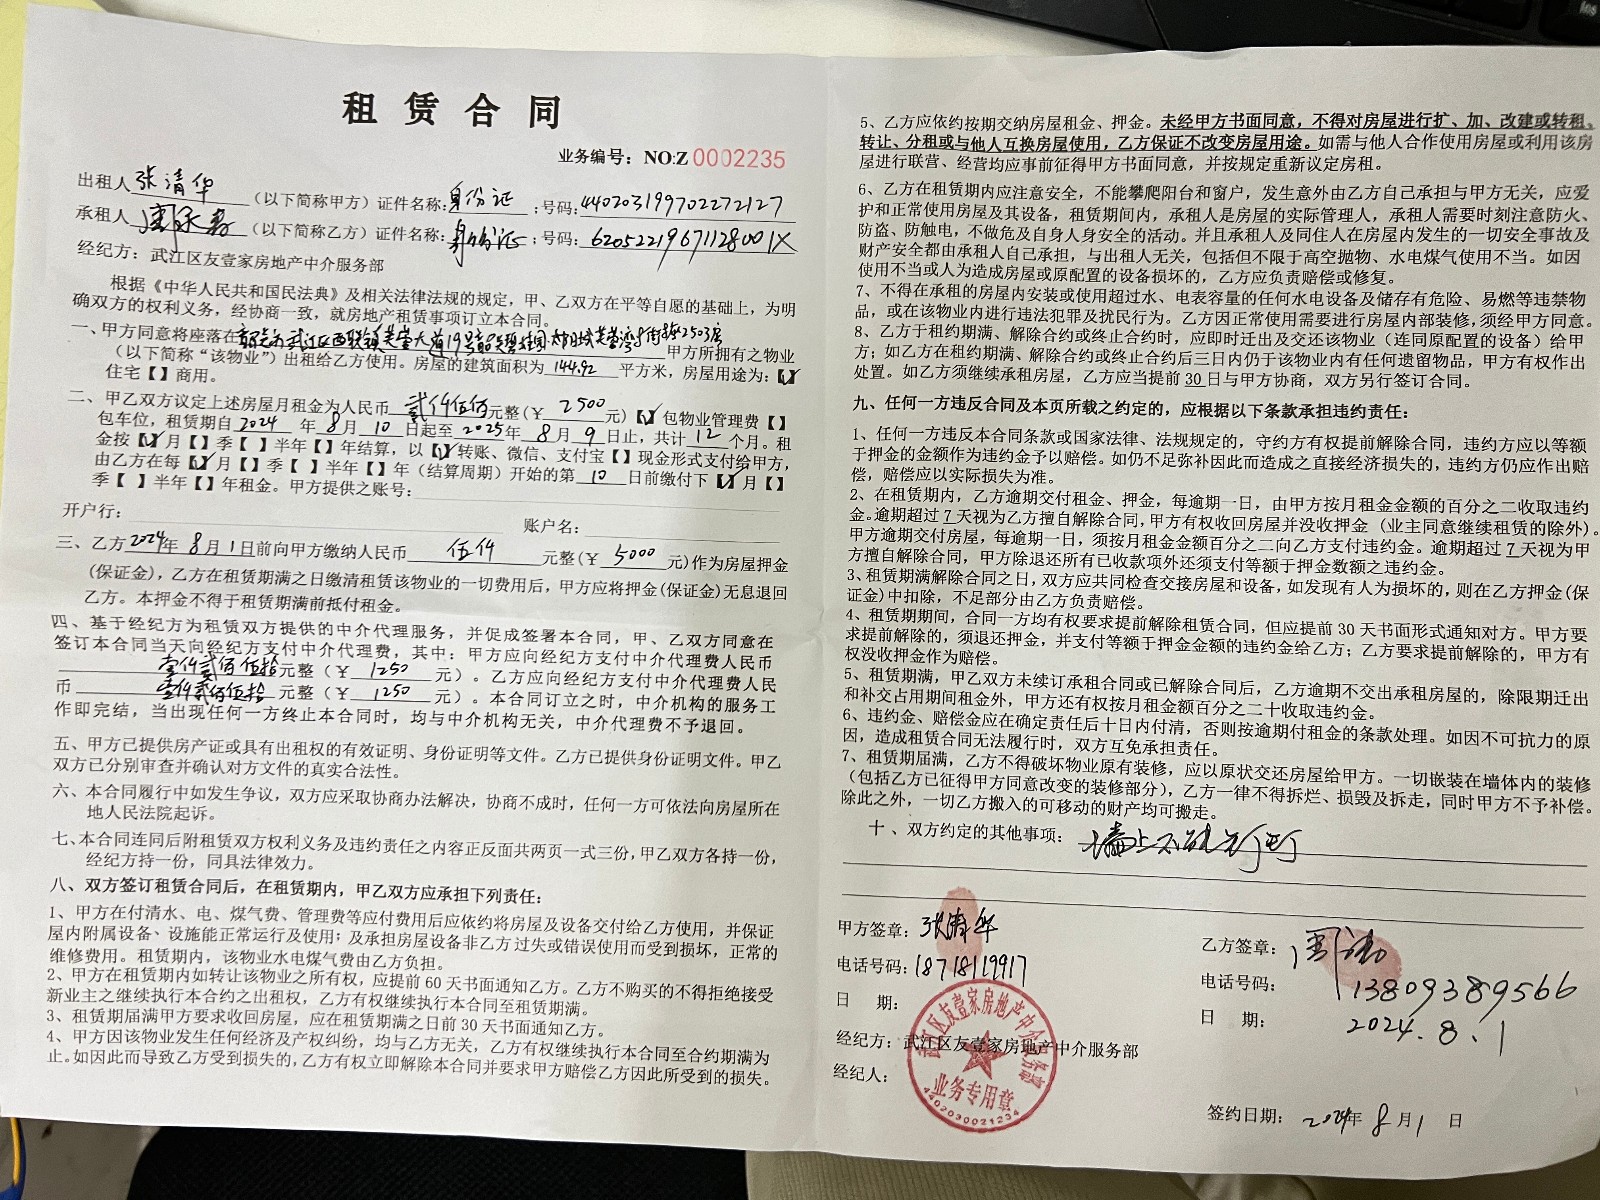 租赁合同
业务编号：NO:Z 0002235
出租人张清华（以下简称甲方）证件名称：身份证；号码：440203199702272127
承租人（以下简称乙方）证件名称：身份证；号码：62052219671128001X
经纪方：武江区友壹家房地产中介服务部
根据《中华人民共和国民法典》及相关法律法规的规定，甲、乙双方在平等自愿的基础上，为明
确双方的权利义务，经协商一致，就房地产租赁事项订立本合同。
一、甲方同意将座落在韶关市武江区西联镇芙蓉大道19号韶关碧桂园·太阳城芙蓉湾 2503房 甲方所拥有之物业
（以下简称“该物业”）出租给乙方使用。房屋的建筑面积为 144.92 平方米，房屋用途为：【✓】
住宅【】商用。
二、甲乙双方议定上述房屋月租金为人民币 贰仟伍佰元整(￥ 2500 元)【✓】包物业管理费【】
包车位，租赁期自2024 年 8月 10 日起至 2025年 8月 9 日止，共计 12 个月。租
金按【✓】月【】季【】半年【】年结算，以【✓】转账、微信、支付宝【】现金形式支付给甲方，
由乙方在每【✓】月【】季【】半年【】年（结算周期）开始的第 10 日前缴付下【✓】月【】
季【】半年【】年租金。甲方提供之账号：
开户行： 账户名：
三、乙方2024年 8月1日前向甲方缴纳人民币 伍仟 元整(￥ 5000 元)作为房屋押金
(保证金)，乙方在租赁期满之日缴清租赁该物业的一切费用后，甲方应将押金(保证金)无息退回
乙方。本押金不得于租赁期满前抵付租金。
四、基于经纪方为租赁双方提供的中介代理服务，并促成签署本合同，甲、乙双方同意在
签订本合同当天向经纪方支付中介代理费，其中：甲方应向经纪方支付中介代理费人民币
壹仟贰佰伍拾元整（￥ 1250 元）。乙方应向经纪方支付中介代理费人民
币 壹仟贰佰伍拾 元整（￥ 1250 元）。本合同订立之时，中介机构的服务工
作即完结，当出现任何一方终止本合同时，均与中介机构无关，中介代理费不予退回。
五、甲方已提供房产证或具有出租权的有效证明、身份证明等文件。乙方已提供身份证明文件。甲乙
双方已分别审查并确认对方文件的真实合法性。
六、本合同履行中如发生争议，双方应采取协商办法解决，协商不成时，任何一方可依法向房屋所在
地人民法院起诉。
七、本合同连同后附租赁双方权利义务及违约责任之内容正反面共两页一式三份，甲乙双方各持一份，
经纪方持一份，同具法律效力。
八、双方签订租赁合同后，在租赁期内，甲乙双方应承担下列责任：
1、甲方在付清水、电、煤气费、管理费等应付费用后应依约将房屋及设备交付给乙方使用，并保证
屋内附属设备、设施能正常运行及使用；及承担房屋设备非乙方过失或错误使用而受到损坏，正常的
维修费用。租赁期内，该物业水电煤气费由乙方负担。
2、甲方在租赁期内如转让该物业之所有权，应提前60天书面通知乙方。乙方不购买的不得拒绝接受
新业主之继续执行本合约之出租权，乙方有权继续执行本合同至租赁期满。
3、租赁期届满甲方要求收回房屋，应在租赁期满之日前30天书面通知乙方。
4、甲方因该物业发生任何经济及产权纠纷，均与乙方无关，乙方有权继续执行本合同至合约期满为
止。如因此而导致乙方受到损失的，乙方有权立即解除本合同并要求甲方赔偿乙方因此所受到的损失。
5、乙方应依约按期交纳房屋租金、押金。未经甲方书面同意，不得对房屋进行扩、加、改建或转租、
转让、分租或与他人互换房屋使用，乙方保证不改变房屋用途。如需与他人合作使用房屋或利用该房
屋进行联营、经营均应事前征得甲方书面同意，并按规定重新议定房租。
6、乙方在租赁期内应注意安全，不能攀爬阳台和窗户，发生意外由乙方自己承担与甲方无关，应爱
护和正常使用房屋及其设备，租赁期间内，承租人是房屋的实际管理人，承租人需要时刻注意防火、
防盗、防触电，不做危及自身人身安全的活动。并且承租人及同住人在房屋内发生的一切安全事故及
财产安全都由承租人自己承担，与出租人无关，包括但不限于高空抛物、水电煤气使用不当。如因
使用不当或人为造成房屋或原配置的设备损坏的，乙方应负责赔偿或修复。
7、不得在承租的房屋内安装或使用超过水、电表容量的任何水电设备及储存有危险、易燃等违禁物
品，或在该物业内进行违法犯罪及扰民行为。乙方因正常使用需要进行房屋内部装修，须经甲方同意。
8、乙方于租约期满、解除合约或终止合约时，应即时迁出及交还该物业（连同原配置的设备）给甲
方；如乙方在租约期满、解除合约或终止合约后三日内仍于该物业内有任何遗留物品，甲方有权作出
处置。如乙方须继续承租房屋，乙方应当提前30日与甲方协商，双方另行签订合同。
九、任何一方违反合同及本页所载之约定的，应根据以下条款承担违约责任：
1、任何一方违反本合同条款或国家法律、法规规定的，守约方有权提前解除合同，违约方应以等额
于押金的金额作为违约金予以赔偿。如仍不足弥补因此而造成之直接经济损失的，违约方仍应作出赔
偿，赔偿应以实际损失为准。
2、在租赁期内，乙方逾期交付租金、押金，每逾期一日，由甲方按月租金金额的百分之二收取违约
金。逾期超过7天视为乙方擅自解除合同，甲方有权收回房屋并没收押金（业主同意继续租赁的除外)。
甲方逾期交付房屋，每逾期一日，须按月租金金额百分之二向乙方支付违约金。逾期超过7天视为甲
方擅自解除合同，甲方除退还所有已收款项外还须支付等额于押金数额之违约金。
3、租赁期满解除合同之日，双方应共同检查交接房屋和设备，如发现有人为损坏的，则在乙方押金(保
证金)中扣除，不足部分由乙方负责赔偿。
4、租赁期期间，合同一方均有权要求提前解除租赁合同，但应提前30天书面形式通知对方。甲方要
求提前解除的，须退还押金，并支付等额于押金金额的违约金给乙方；乙方要求提前解除的，甲方有
权没收押金作为赔偿。
5、租赁期满，甲乙双方未续订承租合同或已解除合同后，乙方逾期不交出承租房屋的，除限期迁出
和补交占用期间租金外，甲方还有权按月租金额百分之二十收取违约金。
6、违约金、赔偿金应在确定责任后十日内付清，否则按逾期付租金的条款处理。如因不可抗力的原
因，造成租赁合同无法履行时，双方互免承担责任。
7、租赁期届满，乙方不得破坏物业原有装修，应以原状交还房屋给甲方。一切嵌装在墙体内的装修
（包括乙方已征得甲方同意改变的装修部分），乙方一律不得拆烂、损毁及拆走，同时甲方不予补偿。
除此之外，一切乙方搬入的可移动的财产均可搬走。
十、双方约定的其他事项：墙上不能打钉
甲方签章：张清华
电话号码：18718119917
日 期：
经纪方：武江区友壹家房地产中介服务部
经纪人：
乙方签章：
电话号码：13809389566
日 期：2024.8.1
签约日期：2024年 8月1 日
武江区友壹家房地产中介服务部
业务专用章
4402030021234